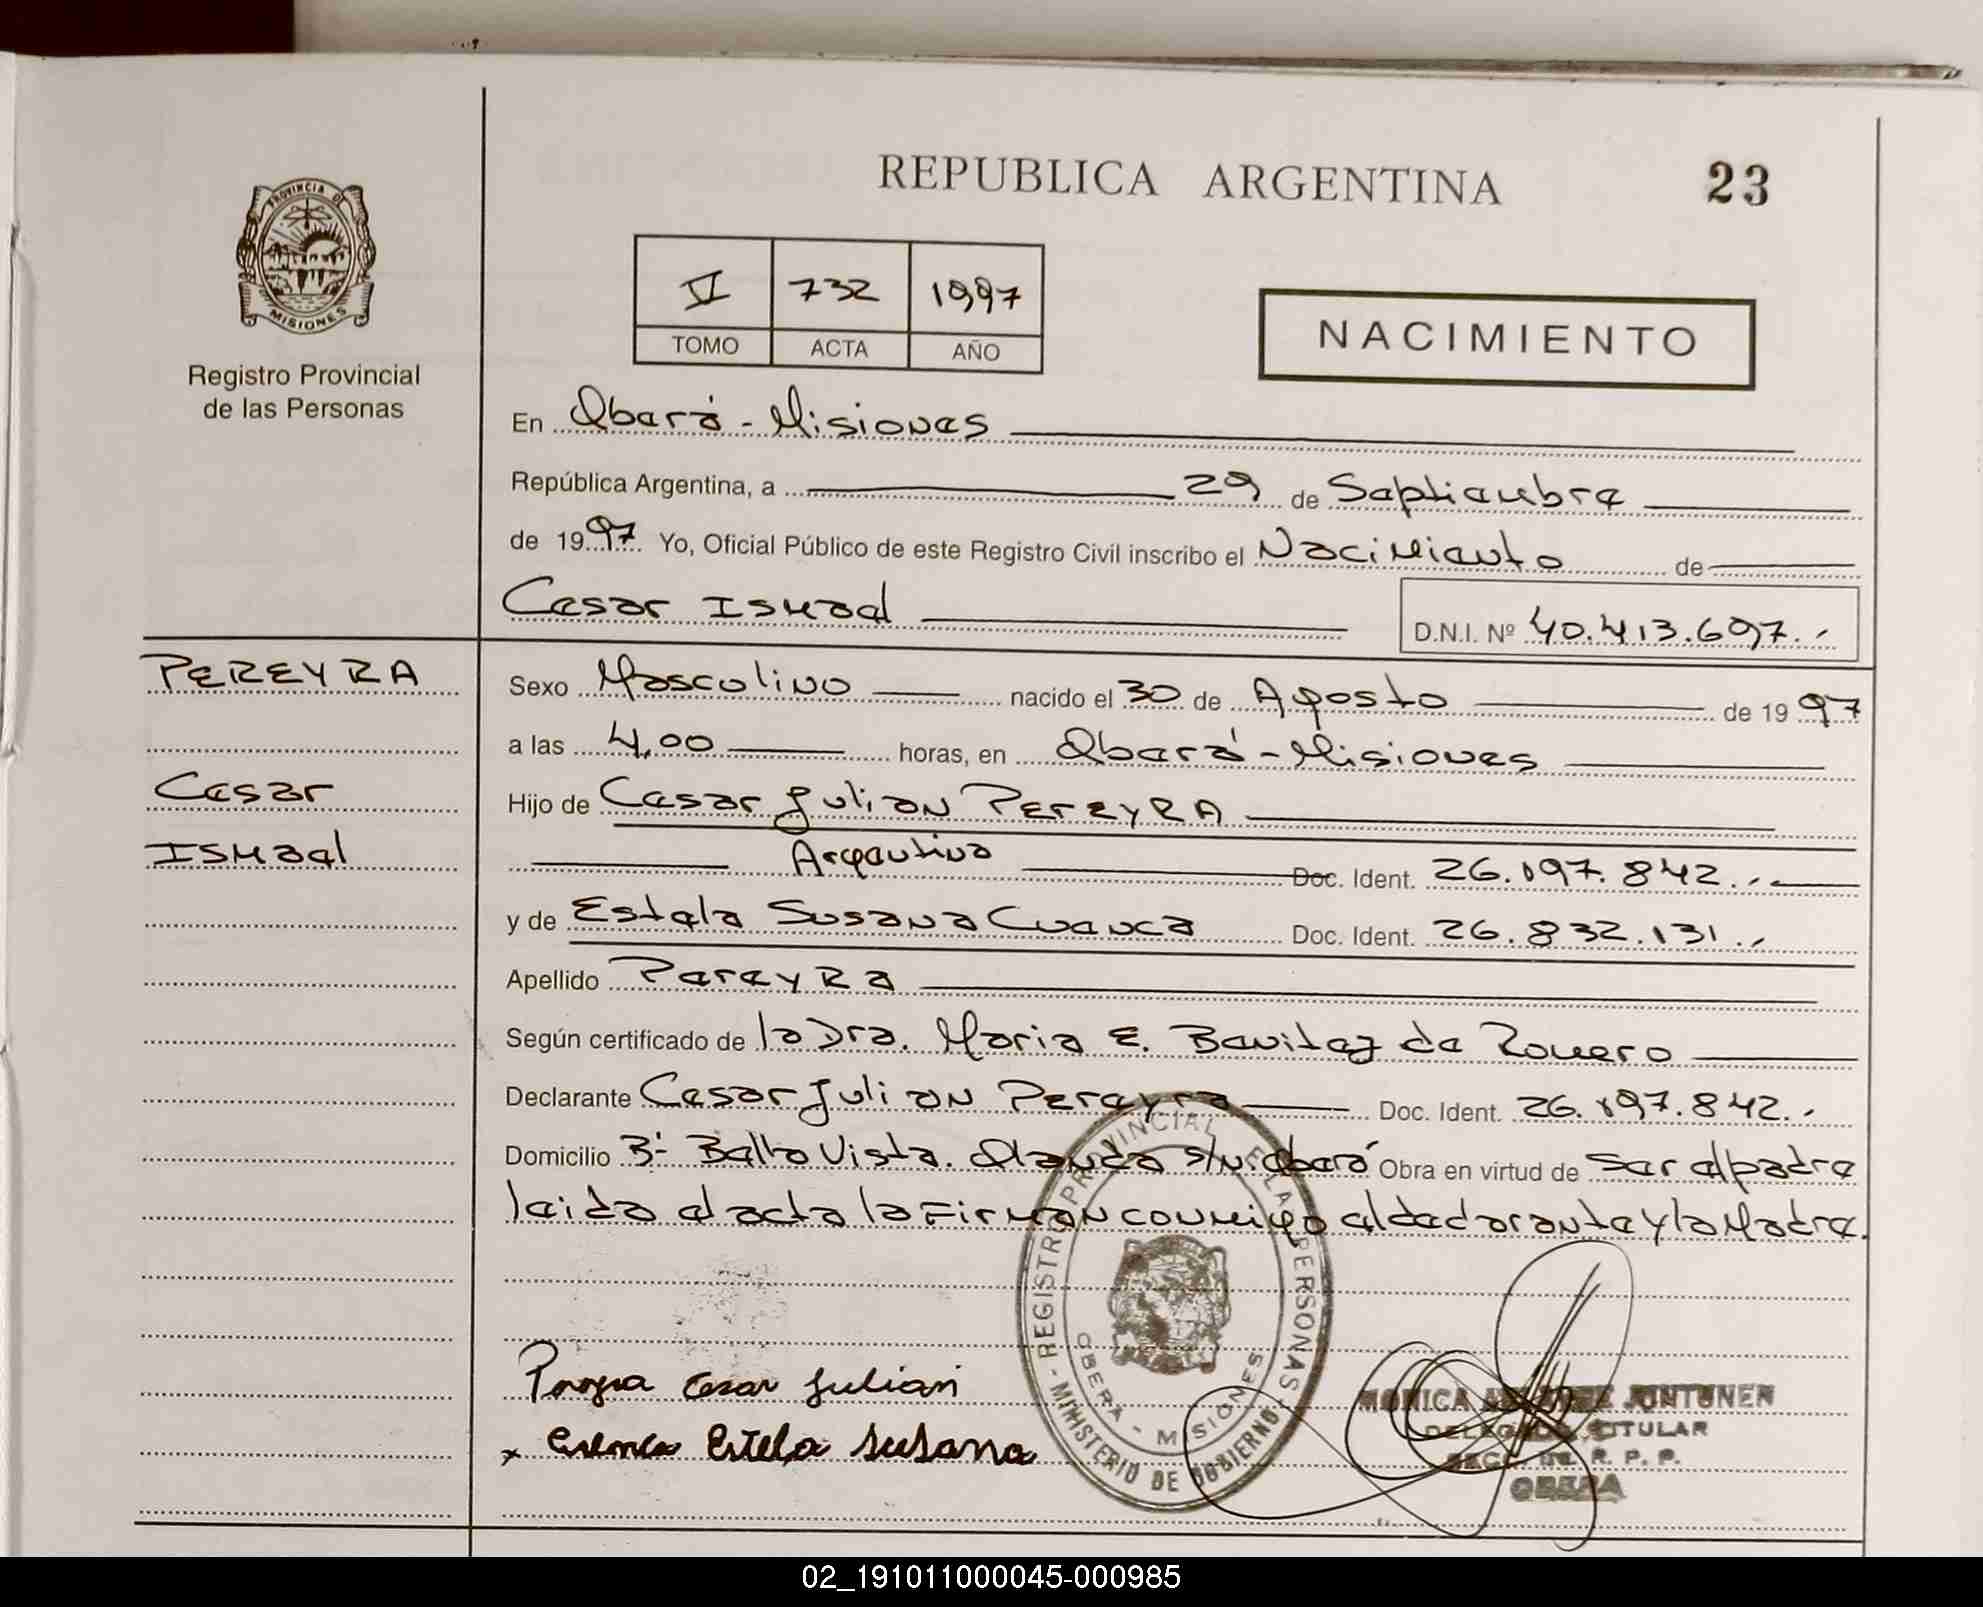 REPUBLICA ARGENTINA 23
PROVINCIA DE
MISIONES
Registro Provincial
de las Personas
VI 732 1997
TOMO ACTA AÑO
NACIMIENTO
En Oberá - Misiones
República Argentina, a 29 de Septiembre
de 1997 Yo, Oficial Público de este Registro Civil inscribo el Nacimiento de
Cesar Ismael D.N.I. Nº 40.413.697.-
PEREYRA
Cesar
Ismael
Sexo Masculino nacido el 30 de Agosto de 1997
a las 4,00 horas, en Oberá - Misiones
Hijo de Cesar Julian PEREYRA
Argentino Doc. Ident. 26.197.842.-
y de Estela Susana Cuenca Doc. Ident. 26.832.131.-
Apellido Pereyra
Según certificado de la Dra. Maria E. Benitez de Romero
Declarante Cesar Julian Pereyra Doc. Ident. 26.197.842.-
Domicilio Bº Bella Vista. s/n. Oberá Obra en virtud de ser el padre
leida el acta la Firman conmigo el declarante y la Madre.
REGISTRO PROVINCIAL DE LAS PERSONAS
OBERÁ - MISIONES
MINISTERIO DE GOBIERNO
Pereyra Cesar Julian
x Cuenca Estela Susana
MONICA JUNTUNEN
DELEGADA TITULAR
SECC. R. P. P.
OBERA
02_191011000045-000985